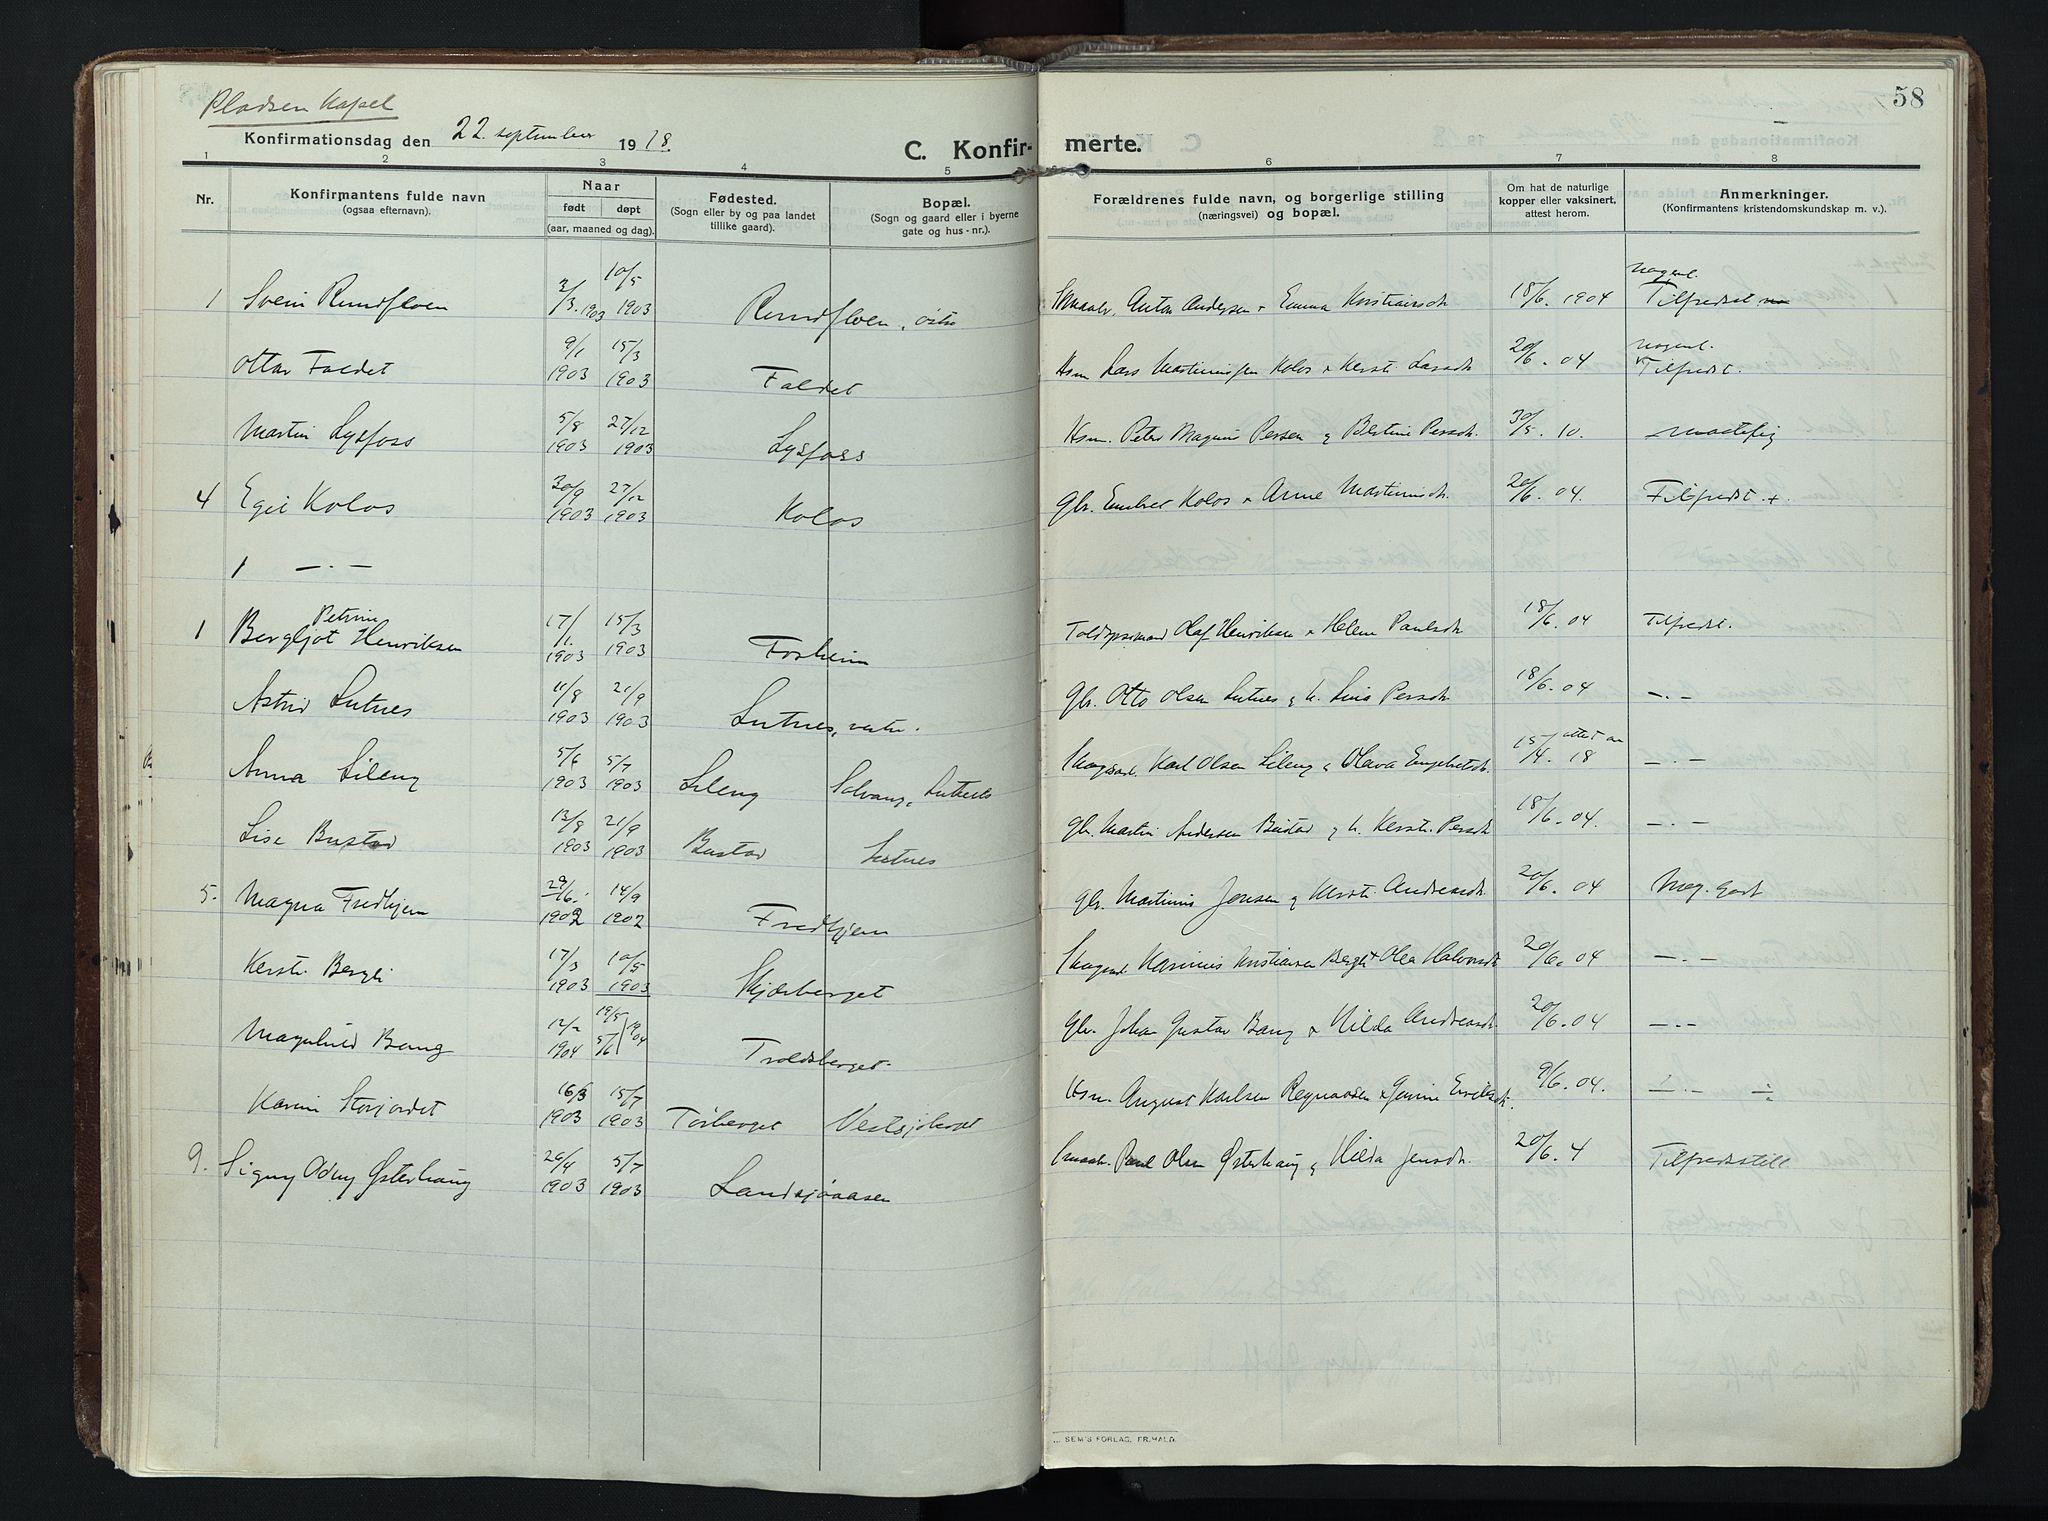 Pladsen Kapel
58
Konfirmationsdag den 22. september 1918.
C. Konfirmerte.
1 2 3 4 5 6 7 8
Nr.
Konfirmantens fulde navn
(ogsaa efternavn).
Naar
født døpt
(aar, maaned og dag).
Fødested.
(Sogn eller by og paa landet
tillike gaard).
Bopæl.
(Sogn og gaard eller i byerne
gate og hus-nr.).
Forældrenes fulde navn, og borgerlige stilling
(næringsvei) og bopæl.
Om hat de naturlige
kopper eller vaksinert,
attest herom.
Anmerkninger.
(Konfirmantens kristendomskundskap m. v.).
1 Svein Rundfloen 3/3. 1903 10/5 1903 Rundfloen, østre Anton Andersen Emma 18/6. 1904 Tilfredst
Ottar Faldet 9/1 1903 15/3 1903 Faldet Hsm Lars Kolos Kersti Larsdt. 20/6. 04 Tilfredst.
Martin Lysfoss 5/8 1903 27/12 1903 Lysfoss Hsm. Peter Magnus Persen og Bertine Persdt. 10. maatelig
4 Egil Kolos 30/9 1903 27/12 1903 Kolos Gbr. Embret Kolos Anne Martinusdt. 20/6. 04. Tilfredst. +
1 — . —
Petrine
1 Bergljot Henriksen 17/1. 1903 15/3 1903 Forheim Olaf Henriksen Helene Paulsdt. 18/6. 04 Tilfredst.
Astrid Lutnes 11/8 1903 21/9 1903 Lutnes, vestre. Gbr. Otto Olsen Lutnes og h. Lina Persdt. 18/6. 04 — . —
Anna Lileng 5/6 1903 5/7 1903 Lileng Solvang, Lutnes Karl Olsen Lileng Olava Engebretsdt. 15/4. 18 — . —
Lise Bustad 13/8 1903 21/9 1903 Bustad Lutnes Gbr. Martin Andersen Bustad og h. Kersti Persdt. 18/6. 04. — . —
5. Magna Fredhjem 29/6. 1902 14/9 1902 Fredhjem Gbr. Martinus Jensen og Kersti Andreasdt. 20/6. 04 Meg. Godt
Kersti Bergli 17/3 1903 10/5 1903 Skjærberget Karinius Kristiansen Bergli Olea Halvorsdt. 20/6. 04 — . —
Magnhild Bang 12/2 1904 19/5 5/6 1904 Troldsberget. Gbr. Johan Gustav Bang Hilda Andreasdt. 20/6. 04 — . —
Karin Storjordet 16/3 1903 15/7 1903 Tørberget Vestsjøberget Hsm. August Karlsen Eriksdt. 9/6. 04. — . — ÷
9. Signy Odny Østerhaug 26/4 1903 5/7 1903 Landsjøaasen Paul Olsen Østerhaug og Hilda Jensdt. 20/6. 4 Tilfredsstill
SEM'S FORLAG, FR.HALD.